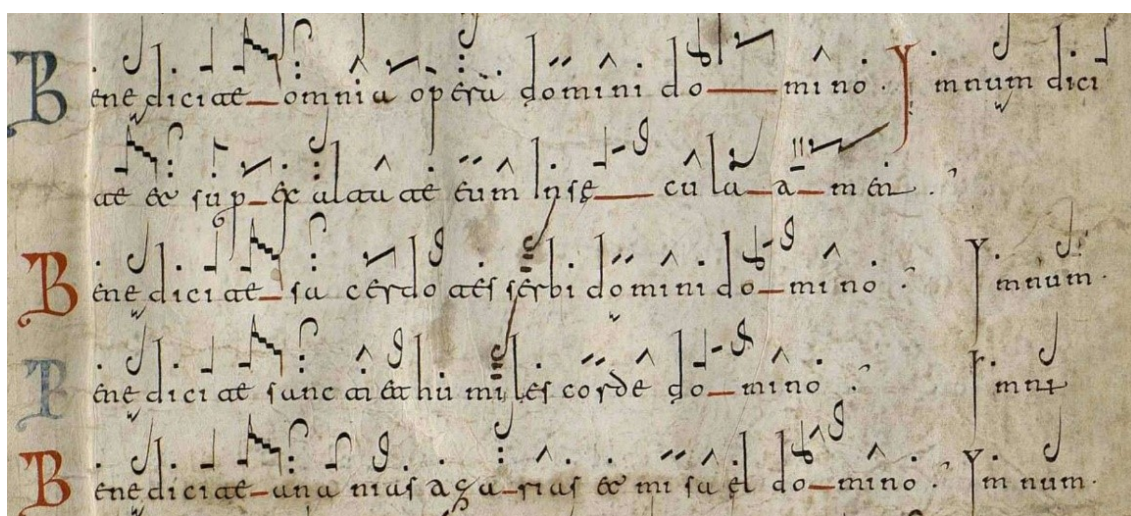 Benedicite omnia opera domini domino. Ymnum dici
te et superexaltate eum In secula amen.
Benedicite sacerdotes serbi domini domino. Ymnum.
Benedicite sancti et humiles corde domino. Ymnum
Benedicite anania azarias et misael domino. Ymnum.